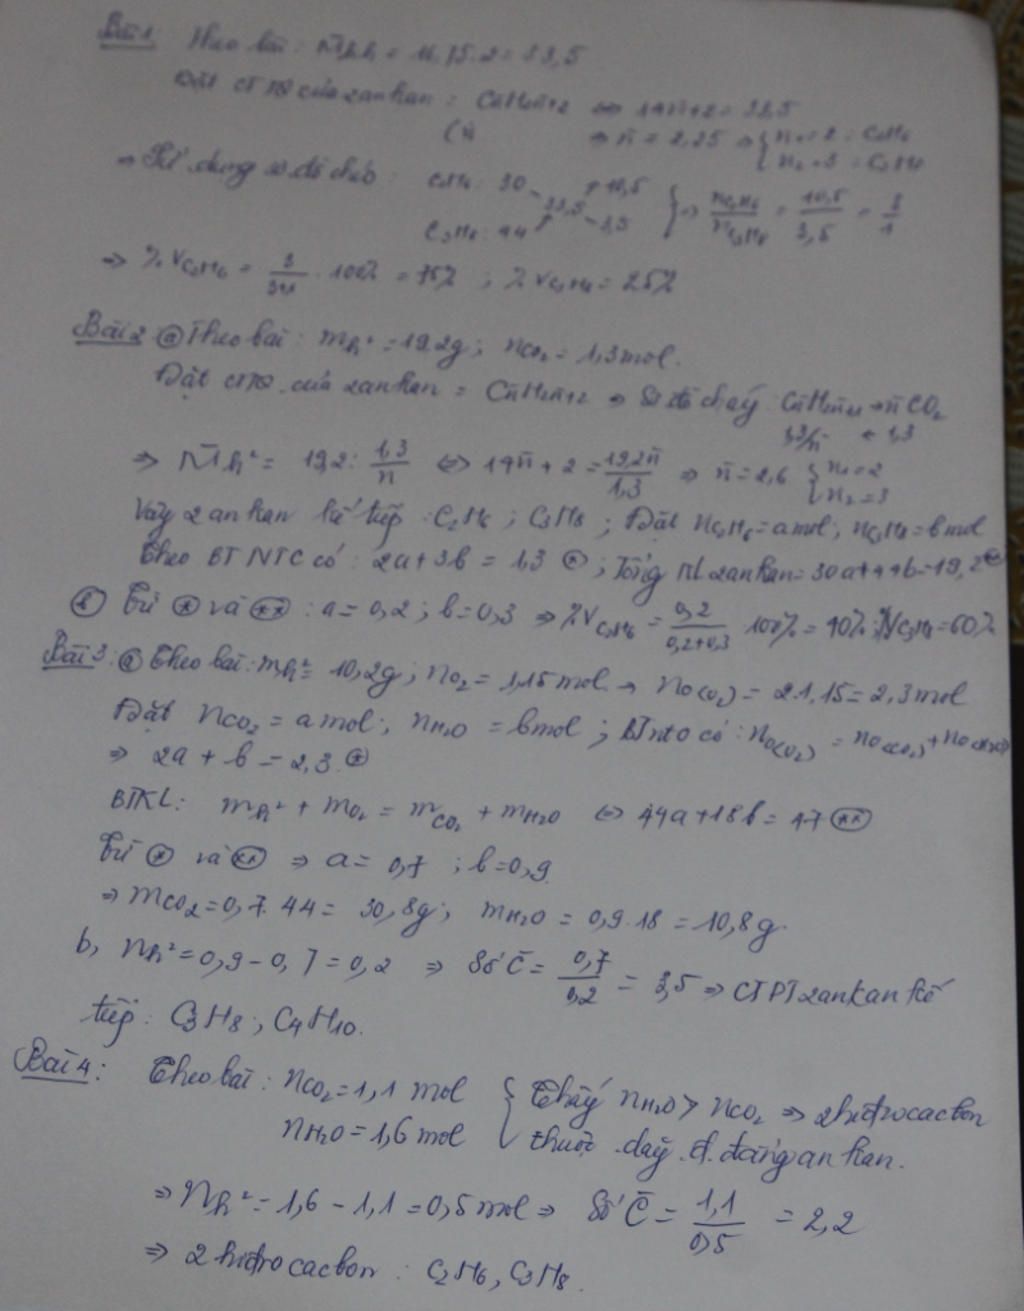 Bài 1: Theo bài: M̄hh = 16,75.2 = 33,5
Đặt CTTQ của 2 ankan = Cn̄H2n̄+2 ⇔ 14n̄+2 = 33,5
⇒ n̄ = 2,25 ⇒ { n1 = 2 : C2H6
n2 = 3 : C3H8
⇒ Sử dụng sơ đồ chéo : C2H6 : 30 10,5
33,5 } ⇒ nC2H6/nC3H8 = 10,5/3,5 = 3/1
C3H8 : 44 3,5
⇒ % VC2H6 = 3/3+1 . 100% = 75% ; % VC3H8 = 25%
Bài 2 ⓐ Theo bài : mh² = 19,2g ; nCO2 = 1,3 mol.
Đặt CTTQ của 2 ankan = Cn̄H2n̄+2 ⇒ Sơ đồ cháy : Cn̄H2n̄+2 → n̄ CO2
1,3/n̄ ← 1,3
⇒ M̄h² = 19,2 : 1,3/n̄ ⇔ 14n̄ + 2 = 19,2n̄/1,3 ⇒ n̄ = 2,6 { n1 = 2
n2 = 3
Vậy 2 ankan kế tiếp : C2H6 ; C3H8 ; Đặt nC2H6 = a mol ; nC3H8 = b mol
Theo BT NTC có : 2a + 3b = 1,3 (*) ; Tổng KL 2 ankan = 30a + 44b = 19,2 (**)
ⓑ Từ (*) và (**) : a = 0,2 ; b = 0,3 ⇒ %VC2H6 = 0,2/0,2+0,3 100% = 40% ; %VC3H8 = 60%
Bài 3 : ⓐ Theo bài : mh² = 10,2g ; nO2 = 1,15 mol → nO(O2) = 2.1,15 = 2,3 mol
Đặt nCO2 = a mol ; nH2O = b mol ; BTNTO có : nO(O2) = nO(CO2) + nO(H2O)
⇒ 2a + b = 2,3 (*)
BTKL : mh² + mO2 = mCO2 + mH2O ⇔ 44a + 18b = 47 (**)
Từ (*) và (**) ⇒ a = 0,7 ; b = 0,9
⇒ mCO2 = 0,7.44 = 30,8g ; mH2O = 0,9.18 = 10,8g.
b, nh² = 0,9 - 0,7 = 0,2 ⇒ Số C̄ = 0,7/0,2 = 3,5 ⇒ CTPT 2 ankan kế
tiếp : C3H8 ; C4H10.
Bài 4 : Theo bài : nCO2 = 1,1 mol { Thấy nH2O > nCO2 ⇒ 2 hiđrocacbon
nH2O = 1,6 mol thuộc dãy đ. đẳng ankan.
⇒ nh² = 1,6 - 1,1 = 0,5 mol ⇒ Số C̄ = 1,1/0,5 = 2,2
⇒ 2 hiđrocacbon : C2H6, C3H8.